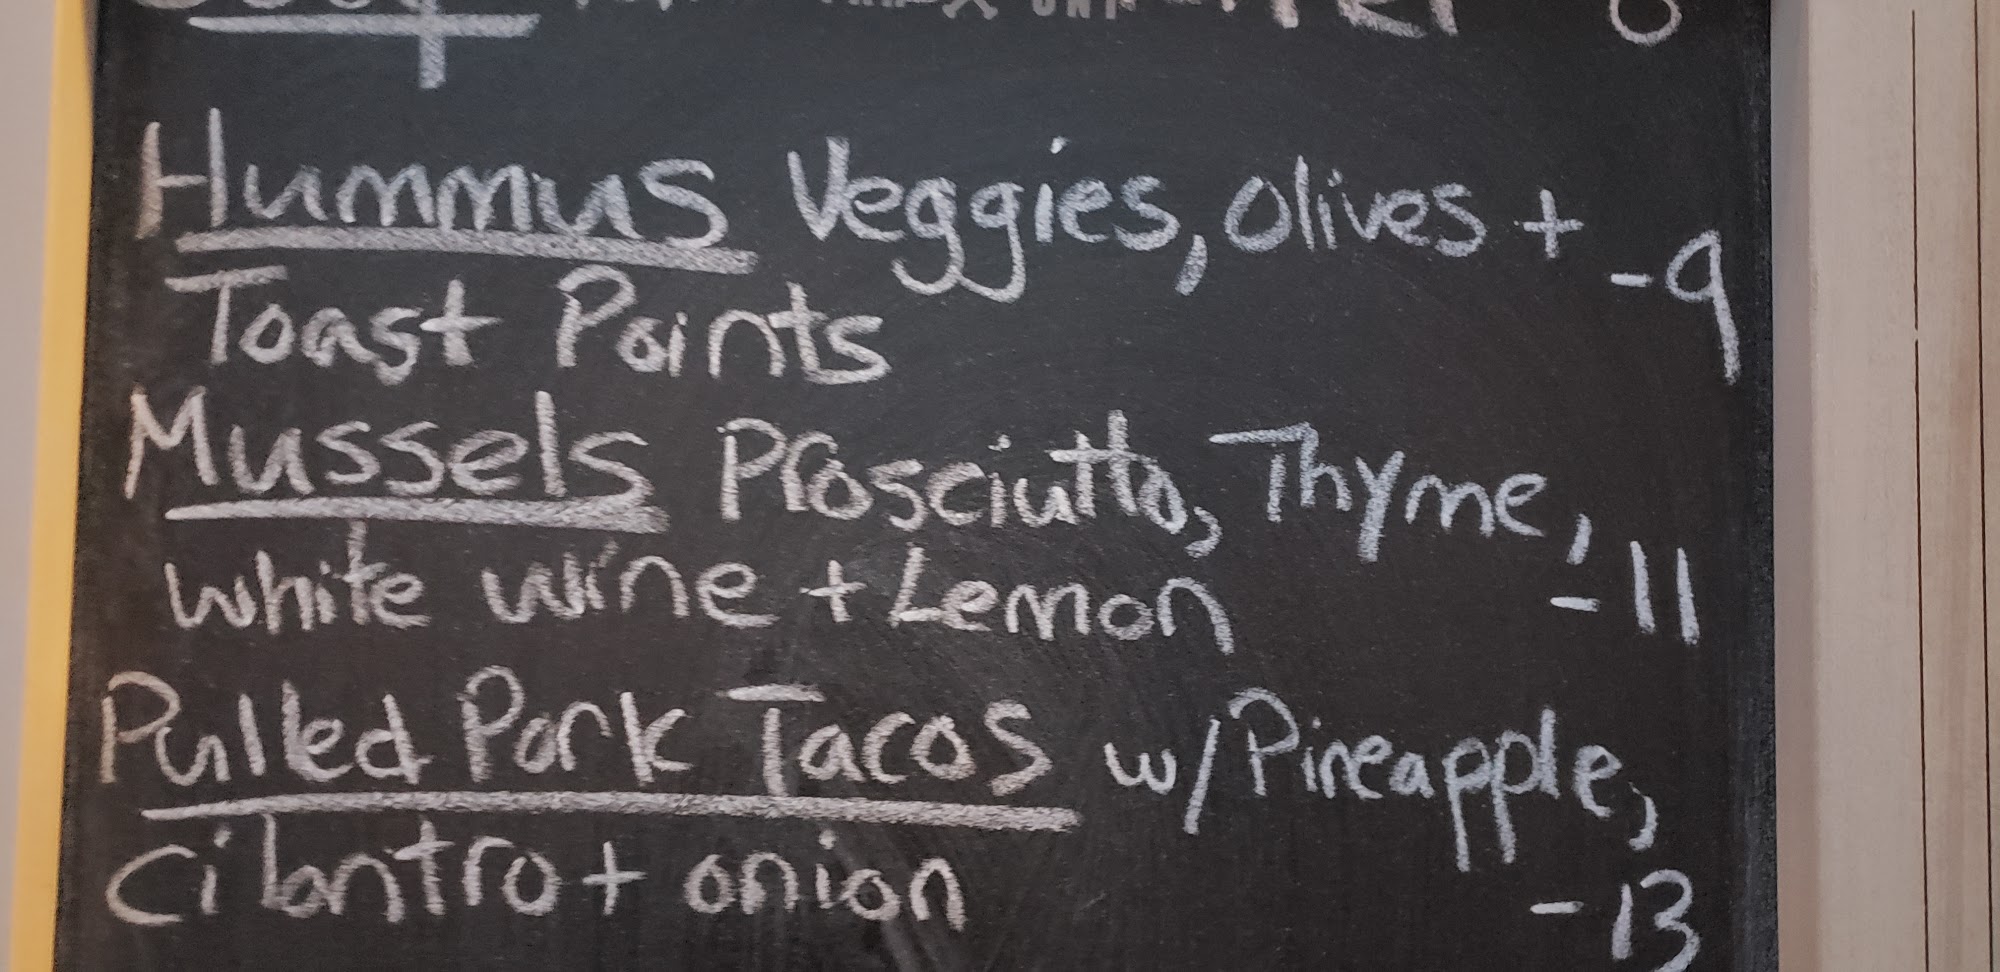 Hummus Veggies, Olives +
Toast Points -9
Mussels Prosciutto, Thyme,
White Wine + Lemon -11
Pulled Pork Tacos w/ Pineapple,
Cilantro + onion -13